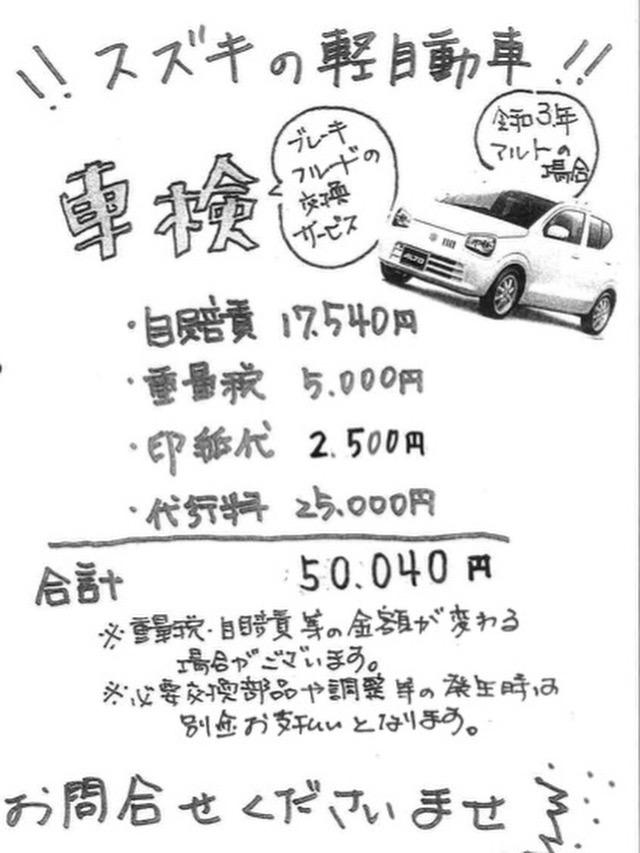 !! スズキの軽自動車 !!
車検
ブレーキ
フルードの
交換
サービス
令和3年
アルトの
場合
ALTO
・自賠責 17.540円
・重量税 5.000円
・印紙代 2.500円
・代行料 25.000円
合計 50.040円
※重量税・自賠責等の金額が変わる
場合がございます。
※必要交換部品や調整等の発生時は
別金お支払いとなります。
お問合せくださいませ